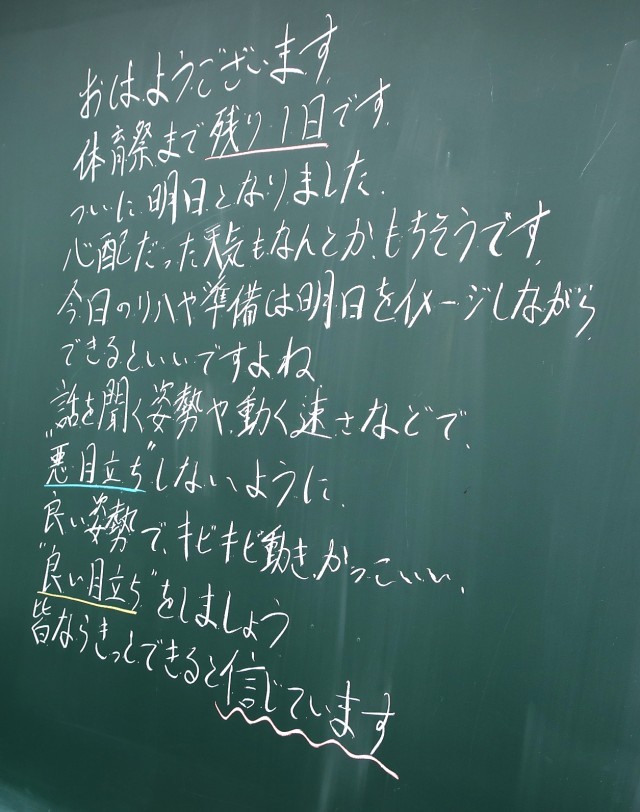 おはようございます
体育祭まで残り1日です.
ついに明日となりました.
心配だった天気もなんとか、もちそうです.
今日のリハや準備は明日をイメージしながら
できるといいですよね
話を聞く姿勢や、動く速さなどで、
"悪目立ち"しないように、
良い姿勢で、キビキビ動き、かっこいい、
"良い目立ち"をしましょう
皆ならきっとできると信じています